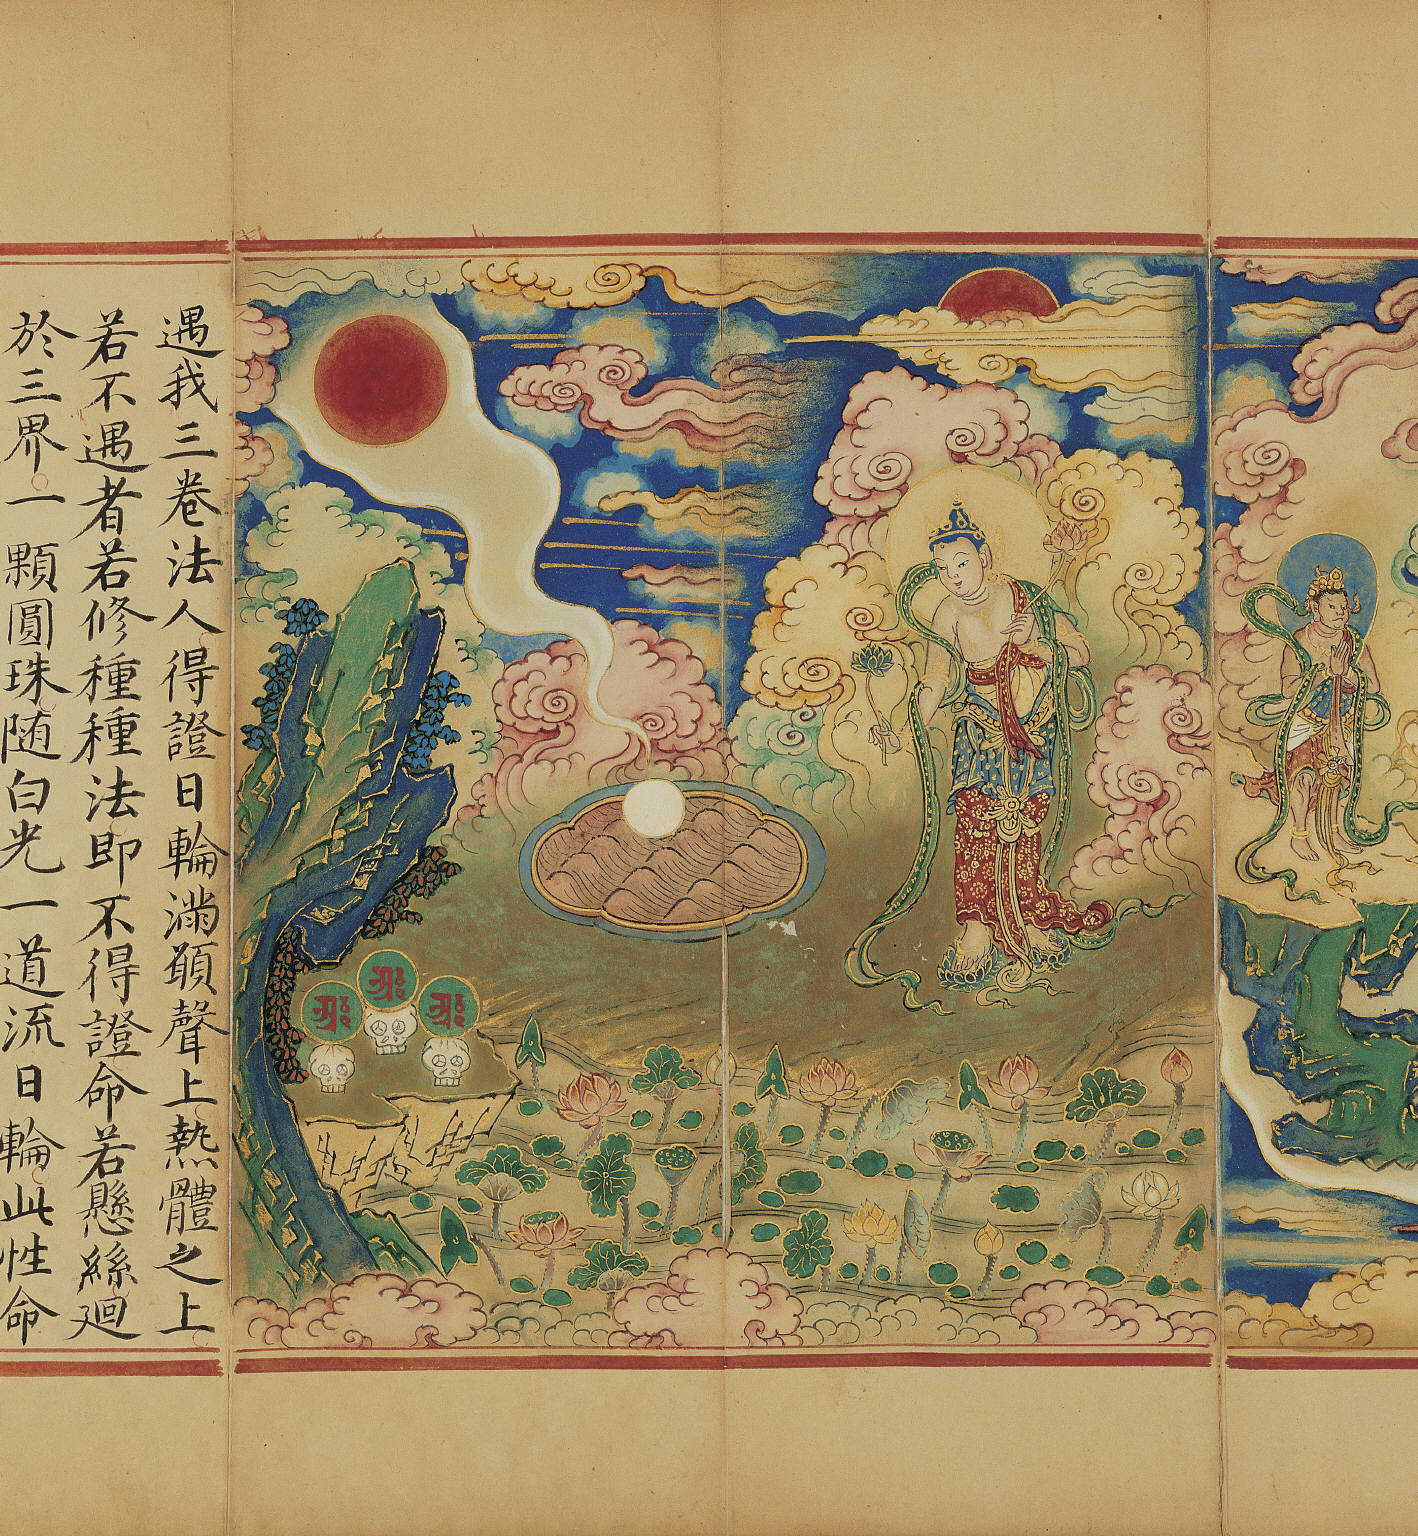 遇我三卷法人得證日輪滿願聲上熱體之上
若不遇者若修種種法即不得證命若懸絲迴
於三界一顆圓珠随白光一道流日輪此性命